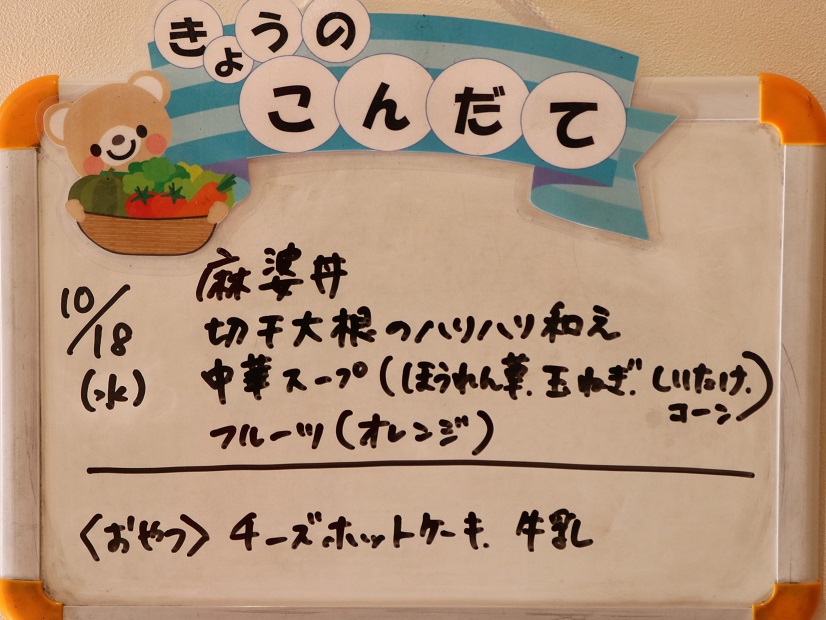 きょうの
こんだて
10/18
(水)
麻婆丼
切干大根のハリハリ和え
中華スープ(ほうれん草、玉ねぎ、しいたけ、コーン)
フルーツ(オレンジ)
〈おやつ〉 チーズホットケーキ、牛乳